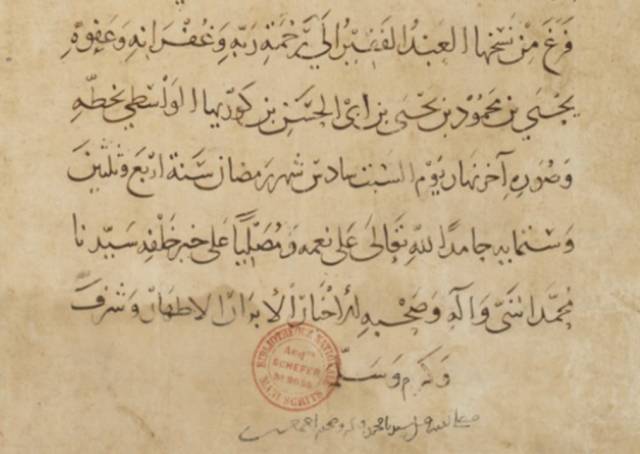 فرغ من نسخها العبد الفقير الى رحمة ربه وغفرانه وعفوه
يحيى بن محمود بن يحيى بن ابى الحسن بن كوريها الواسطى بخطه
وصوره آخر نهار يوم السبت سادس شهر رمضان سنة اربع وثلثين
وستمايه حامدا لله تعالى على نعمه ومصليا على خير خلقه سيدنا
محمد النبى وآله وصحبه الاخيار الابرار الاطهار وشرف
وكرم وسلم
BIBLIOTHÈQUE NATIONALE
Acq^on
SCHEFER
MANUSCRITS